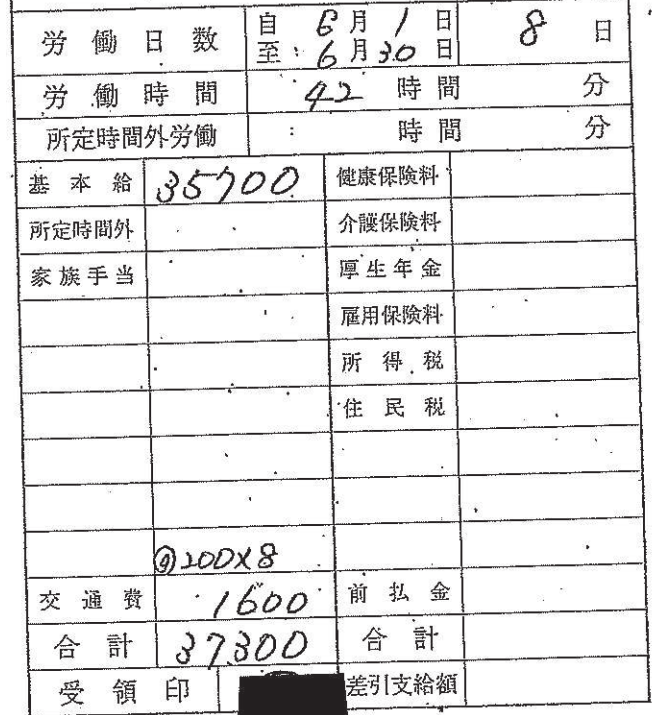 労働日数 自 6月1日 至 6月30日 8日
労働時間 42 時間 分
所定時間外労働 時間 分
基本給 35700 健康保険料
所定時間外 介護保険料
家族手当 厚生年金
雇用保険料
所得税
住民税
200×8
交通費 1600 前払金
合計 37300 合計
受領印 差引支給額